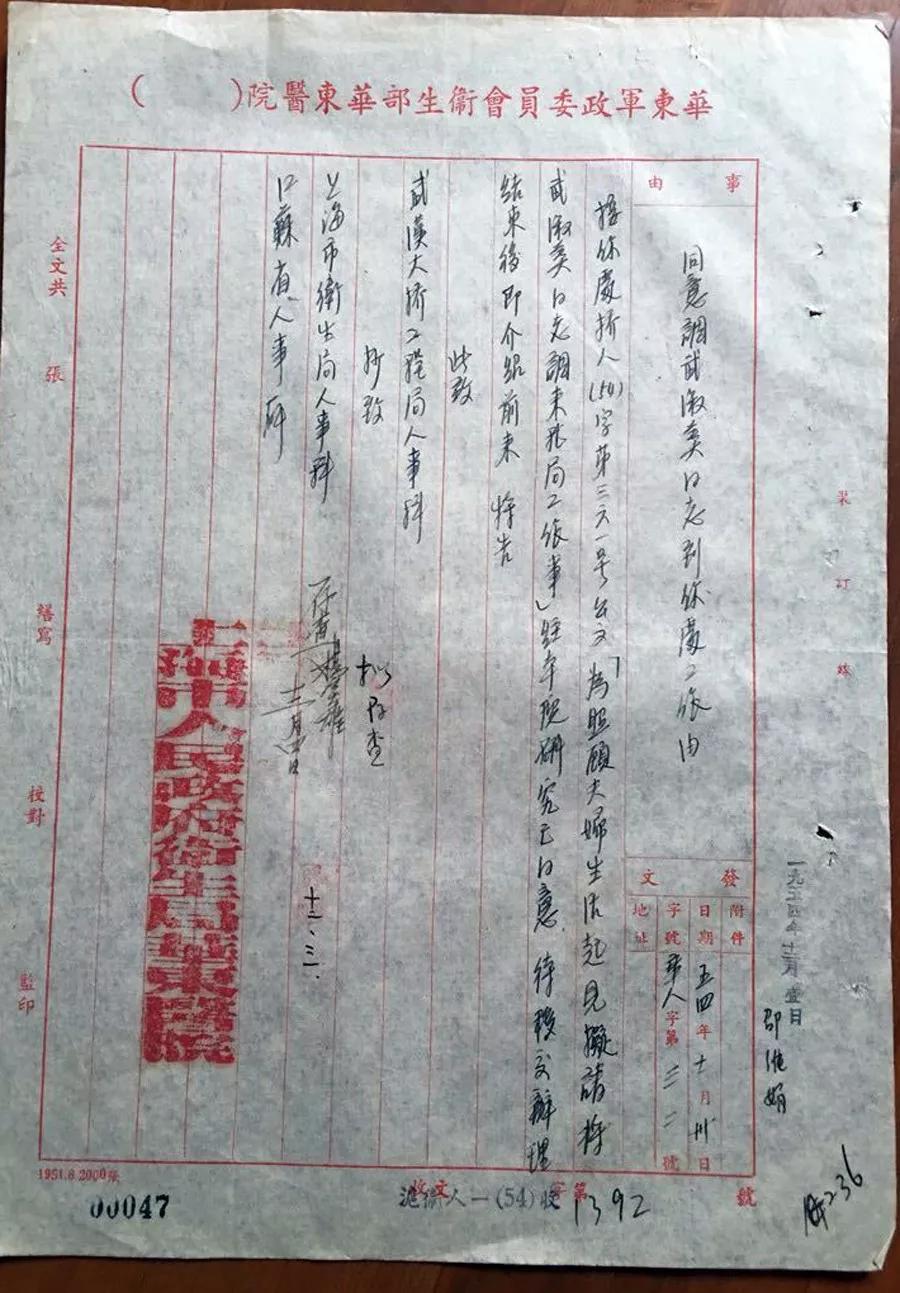 華東軍政委員會衞生部華東醫院(　　)
事由
同意調武淑英同志到你處工作由
發文
附件
日期 五四年十一月卅日
字號 華人字第三二號
地址
接你處橋人(54)字第三六一号公文「為照顧夫婦生活起見擬請將
武淑英同志調來我局工作事」經本院研究已同意，待移交辦理
結束後即介紹前來　特告
此致
武漢大橋工程局人事科
抄致
上海市衛生局人事科
江蘇省人事所
拟存查
十二、三.
存查
十二月
上海市人民政府衛生局華東醫院
全文共　張
繕寫
校對
監印
裝訂線
一九五四年十二月壹日
1951.8.2000張
00047
滬衛人一(54)收文字第1392號